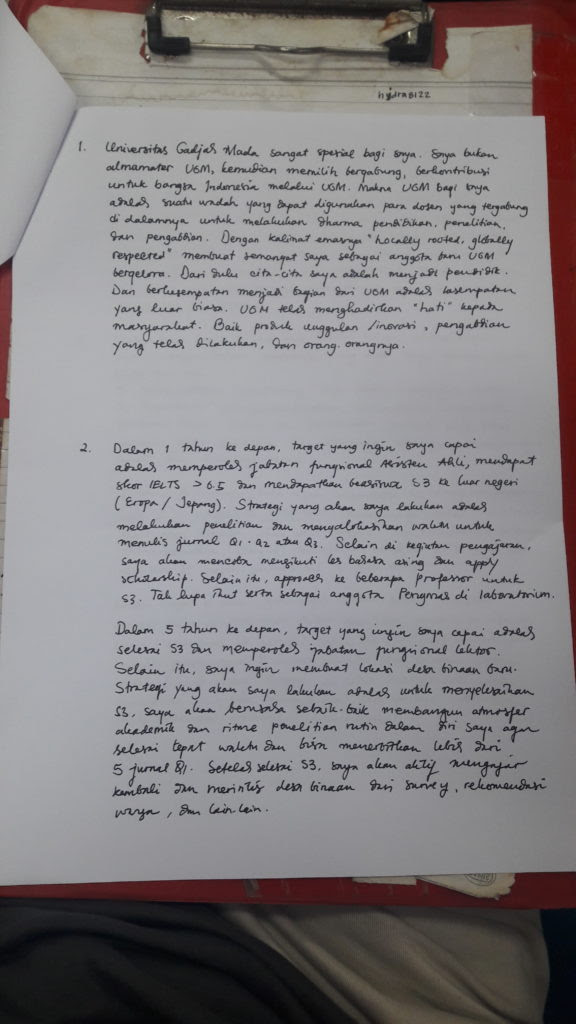 hydra8122
1. Universitas Gadjah Mada sangat spesial bagi saya. Saya bukan
almamater UGM, kemudian memilih bergabung, berkontribusi
untuk bangsa Indonesia melalui UGM. Makna UGM bagi saya
adalah suatu wadah yang dapat digunakan para dosen yang tergabung
di dalamnya untuk melakukan dharma pendidikan, penelitian,
dan pengabdian. Dengan kalimat emasnya "Locally rooted, globally
respected" membuat semangat saya sebagai anggota baru UGM
bergelora. Dari dulu cita-cita saya adalah menjadi pendidik.
Dan berkesempatan menjadi bagian dari UGM adalah kesempatan
yang luar biasa. UGM telah menghadirkan "hati" kepada
masyarakat. Baik produk unggulan /inovasi, pengabdian
yang telah dilakukan, dan orang-orangnya.
2. Dalam 1 tahun ke depan, target yang ingin saya capai
adalah memperoleh jabatan fungsional Asisten Ahli, mendapat
skor IELTS > 6.5 dan mendapatkan beasiswa S3 ke luar negeri
(Eropa / Jepang). Strategi yang akan saya lakukan adalah
melakukan penelitian dan mengalokasikan waktu untuk
menulis jurnal Q1. Q2 atau Q3. Selain di kegiatan pengajaran,
saya akan mencoba mengikuti les bahasa asing dan apply
scholarship. Selain itu, approach ke beberapa professor untuk
S3. Tak lupa ikut serta sebagai anggota Pengmas di laboratorium.
Dalam 5 tahun ke depan, target yang ingin saya capai adalah
selesai S3 dan memperoleh jabatan fungsional lektor.
Selain itu, saya ingin membuat lokasi desa binaan baru.
Strategi yang akan saya lakukan adalah untuk menyelesaikan
S3, saya akan berusaha sebaik-baik membangun atmosfer
akademik dan ritme penelitian rutin dalam diri saya agar
selesai tepat waktu dan bisa menerbitkan lebih dari
5 jurnal Q1. Setelah selesai S3, saya akan aktif mengajar
kembali dan merintis desa binaan dari survey, rekomendasi
warga, dan lain-lain.